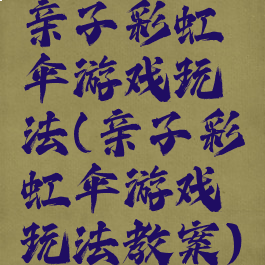 亲子彩虹
伞游戏玩
法(亲子彩
虹伞游戏
玩法教案)